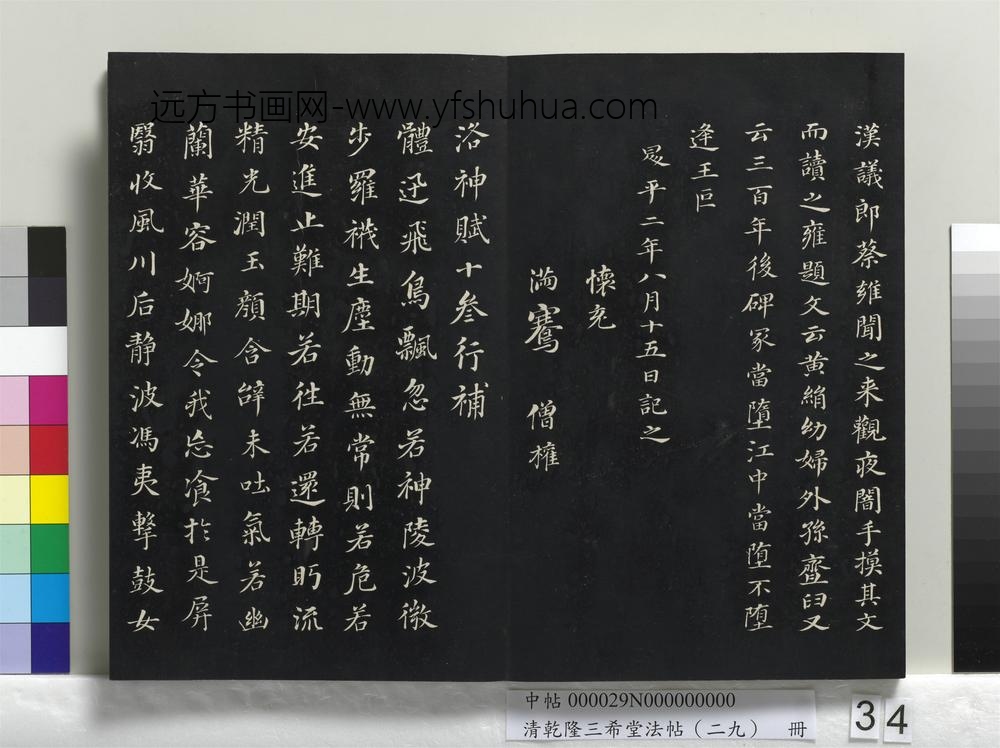 远方书画网-www.yfshuhua.com
漢議郎蔡雍聞之来觀夜闇手摸其文
而讀之雍題文云黄絹幼婦外孫齏臼又
云三百年後碑冢當墮江中當堕不堕
逢王叵
昇平二年八月十五日記之
懷充
滿騫 僧權
洛神賦十叄行補
體迅飛鳥飄忽若神陵波微
步羅襪生塵動無常則若危若
安進止難期若往若還轉眄流
精光潤玉顔含辭未吐氣若幽
蘭華容婀娜令我忘飡於是屏
翳收風川后静波馮夷擊鼓女
中帖 000029N000000000
清乾隆三希堂法帖（二九） 冊
34